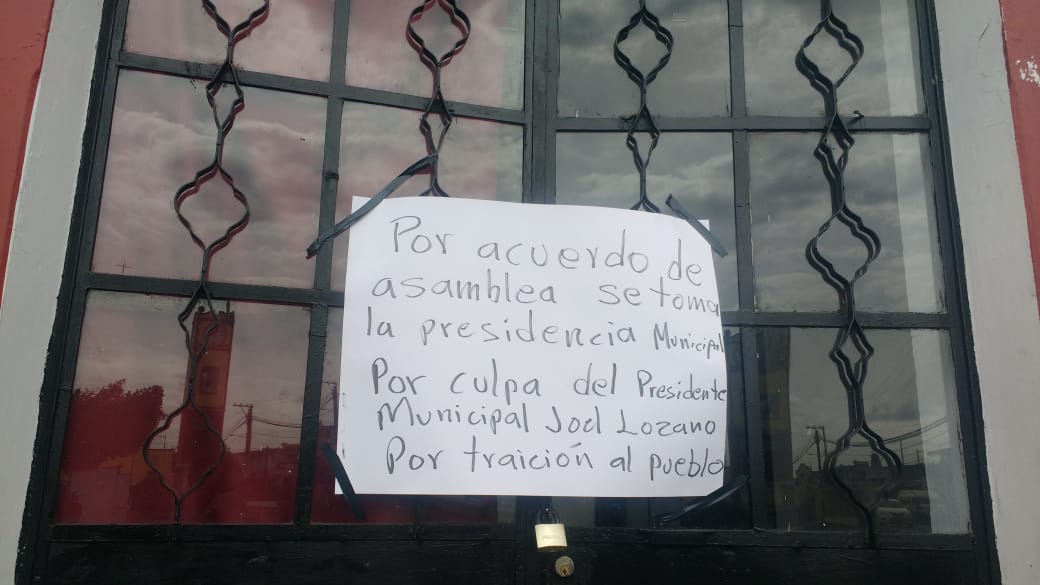 Por acuerdo de
asamblea se toma
la presidencia Municipal
Por culpa del Presidente
Municipal Joel Lozano
Por traición al pueblo